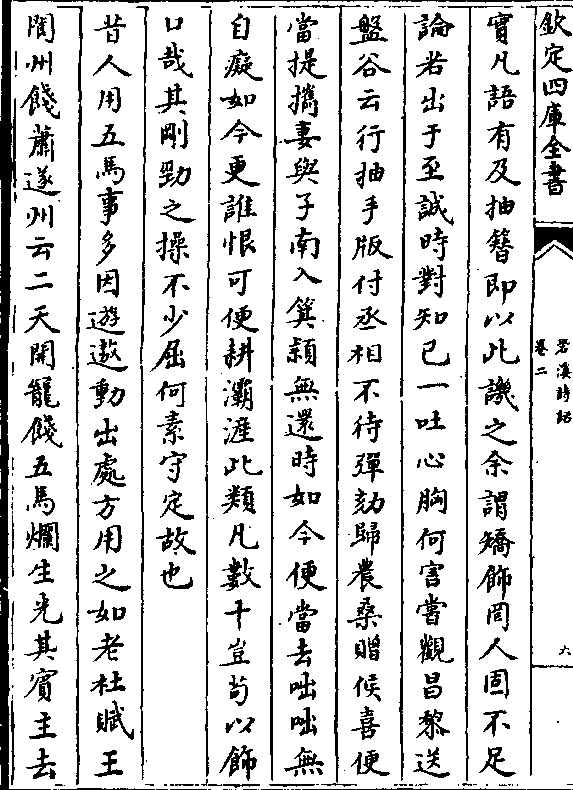 欽定四庫全書
䂬溪詩話
卷二
六
實凡語有及抽簪即以此譏之余謂矯飾罔人固不足
論若出于至誠時對知己一吐心胸何害嘗觀昌黎送
盤谷云行抽手版付丞相不待彈劾歸農桑贈侯喜便
當提攜妻與子南入箕潁無還時如今便當去咄咄無
自癡如今更誰恨可便耕灞滻此類凡數十豈茍以飾
口哉其剛勁之操不少屈何素守定故也
昔人用五馬事多因遊遨動出處方用之如老杜賦王
閬州餞蕭遂州云二天開寵餞五馬爛生光其賓主去